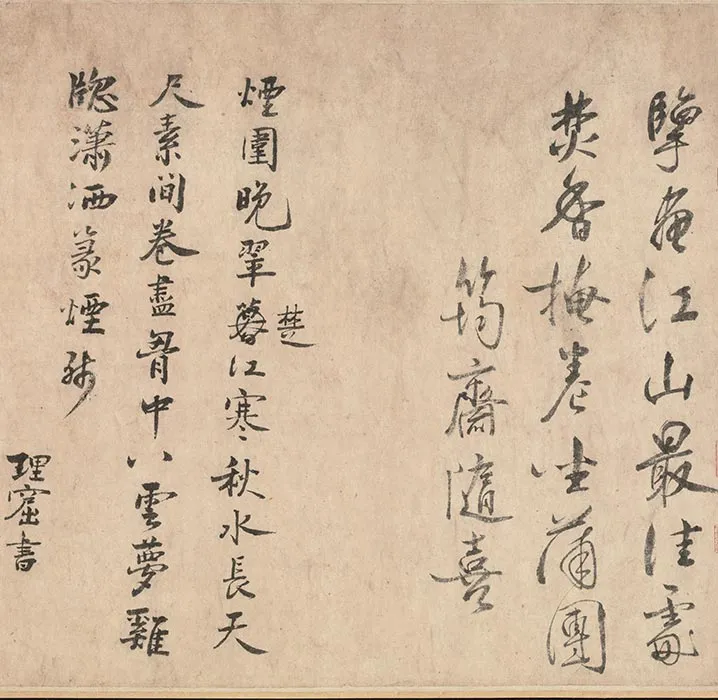 擘畫江山最佳處
焚香掩卷坐蒲團
筠齋隨喜
煙圍晚翠楚江寒秋水長天
尺素間卷盡胷中八雲夢雞
牕瀟洒篆煙殘
理窟書